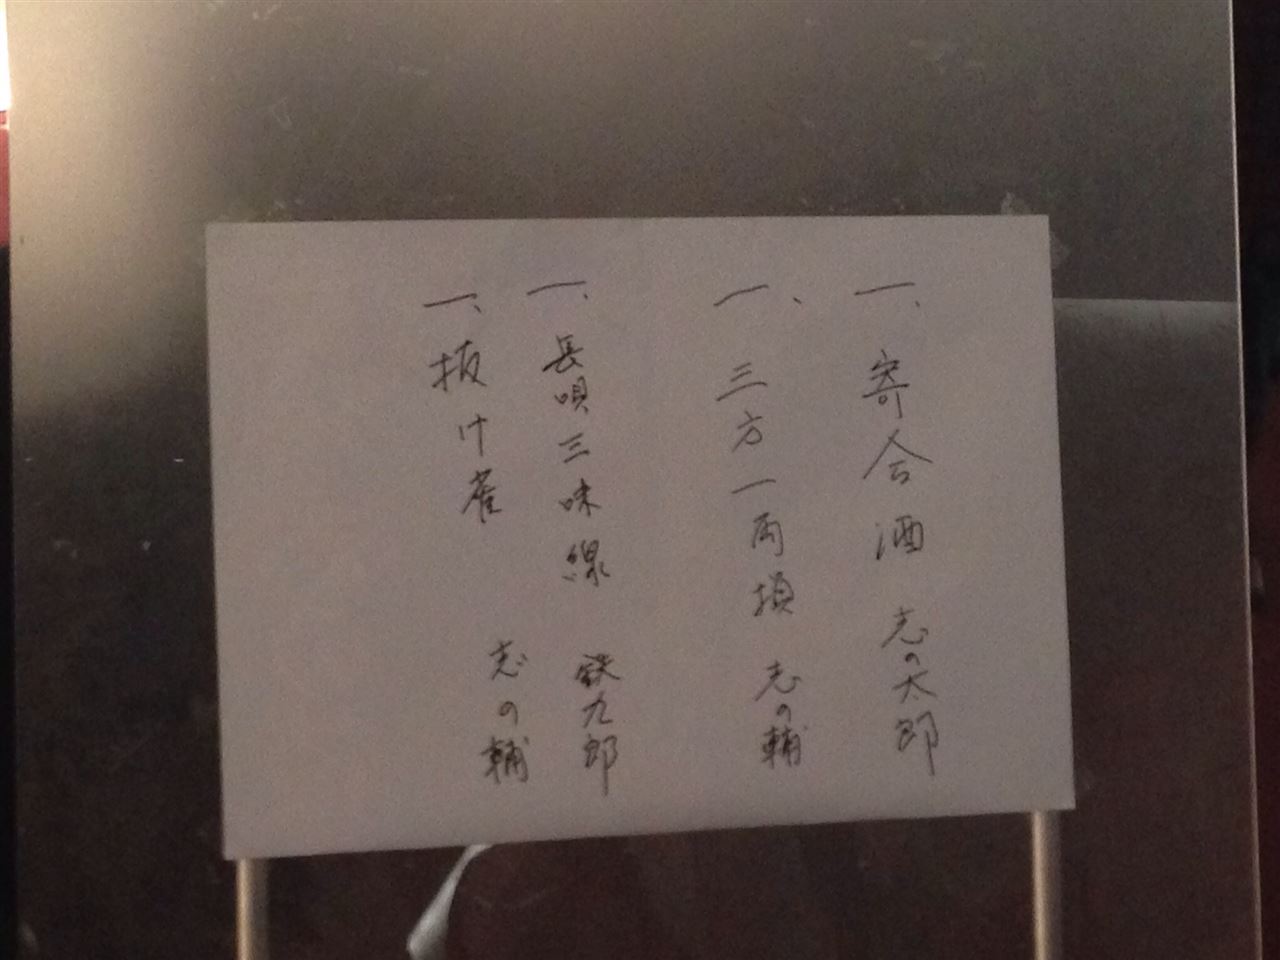 一、寄合酒 志の太郎
一、三方一両損 志の輔
一、長唄三味線 鉄九郎
一、抜け雀 志の輔